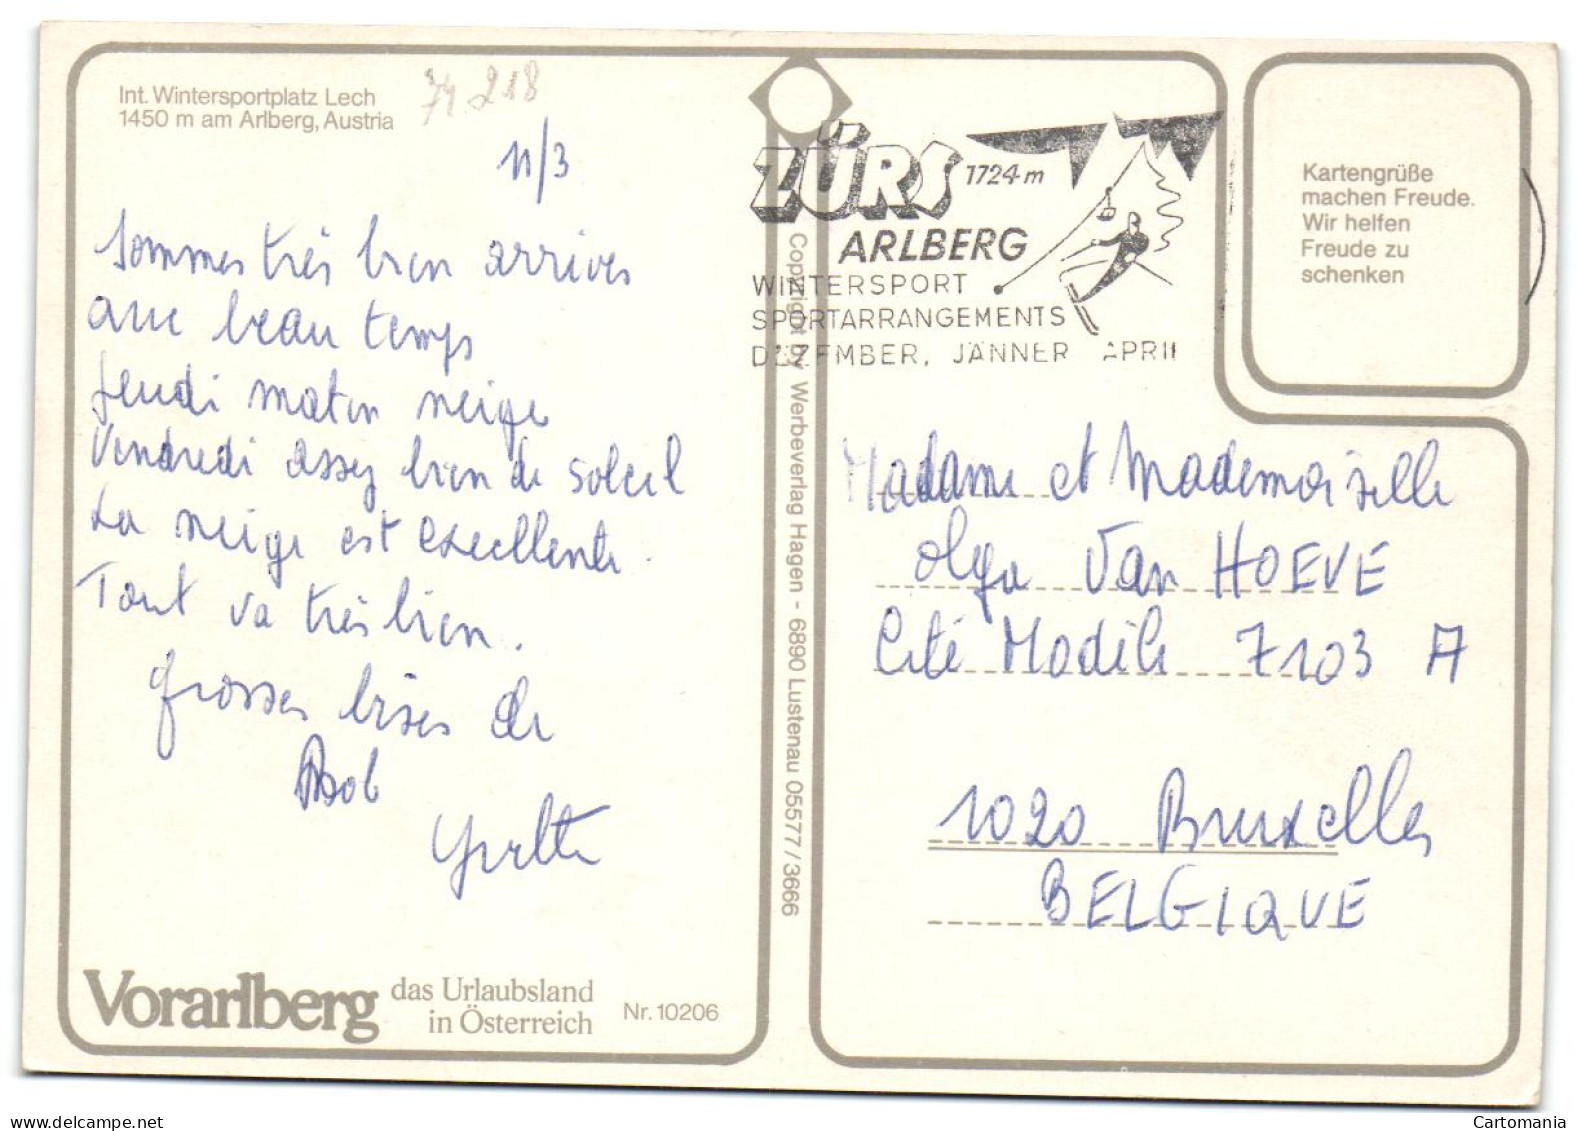 Int. Wintersportplatz Lech
1450 m am Arlberg, Austria
74 218
11/3
Sommes très bien arrives
avec beau temps
Jeudi matin neige
Vendredi assez bien de soleil
La neige est excellente.
Tout va très bien.
Grosses bises de
Bob
Yvette
Vorarlberg das Urlaubsland
in Österreich
Nr. 10206
Copyright by Werbeverlag Hagen - 6890 Lustenau 05577/3666
ZÜRS 1724 m
ARLBERG
WINTERSPORT
SPORTARRANGEMENTS
DEZEMBER, JÄNNER APRIL
Kartengrüße
machen Freude.
Wir helfen
Freude zu
schenken
Madame et Mademoiselle
Olga Van HOEVE
Cité Modèle 7103 A
1020 Bruxelles
BELGIQUE
Cartomania